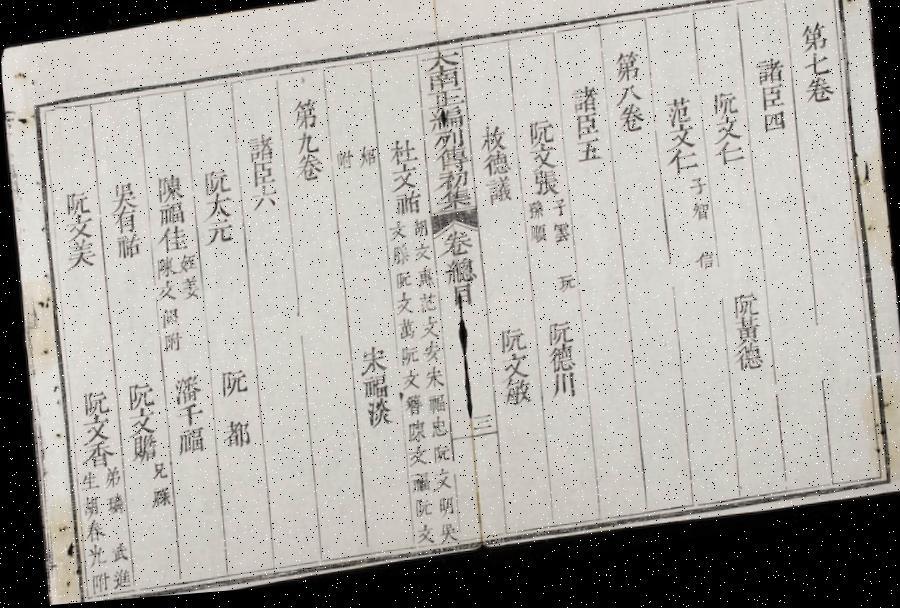 第七卷
諸臣四
阮文仁 阮黃德
范文仁 子智 信
第八卷
諸臣五
阮文張 子雲 玩 孫順 阮德川
枚德議 阮文敏
大南正編列傳初集 卷總目 三
杜文祐 胡文 范文 宋福 忠阮文明吳文 阮文 阮文簪陳文 阮文
附 宋福淡
第九卷
諸臣六
阮太元 阮都
陳福佳 姪美 陳文 附 潘千福
吳有祐 阮文贍 兄
阮文美 阮文香 弟璘 武進生 附